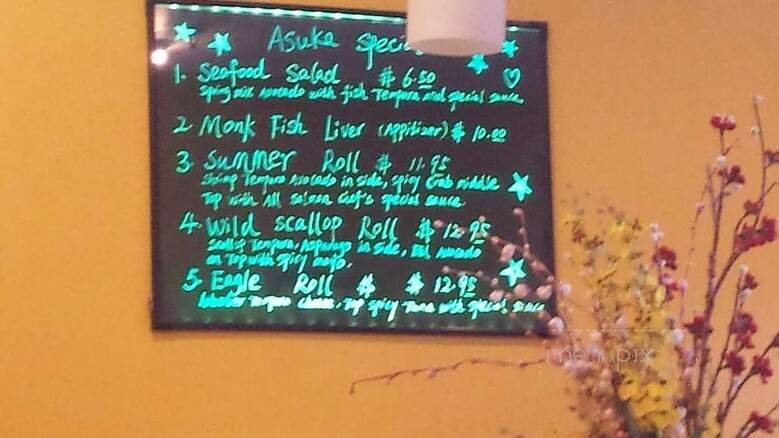 Asuka speci
1. Seafood Salad $ 6.50
spring mix Avocado with fish Tempura and special sauce
2 Monk Fish Liver (Appitizer) $ 10.00
3. Summer Roll $ 11.95
Shrimp Tempura Avocado in side, spicy Crab middle
Top with All Salmon Chef's special sauce
4. Wild scallop Roll $ 12.95
Scallop Tempura, Asparago in side, Eel Avocado
on Top with spicy mayo.
5. Eagle Roll $ $ 12.95
Tempura cheese, Top spicy Tuna with special sauce
menupix